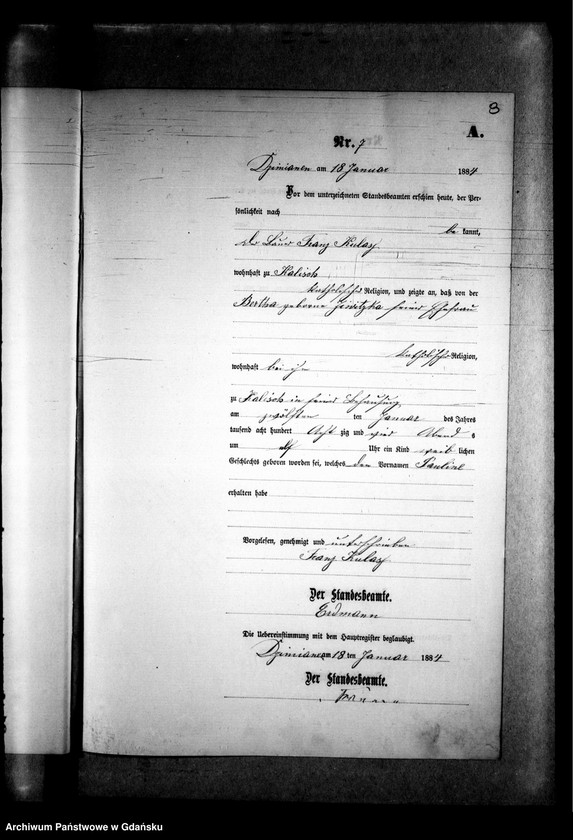 8
A.
Nr. 7
Dzimianen am 18 Januar 1884
Vor dem unterzeichneten Standesbeamten erschien heute, der Per-
sönlichkeit nach
be kannt,
der Bauer Franz Kulas
wohnhaft zu Kalisch
katholischer Religion, und zeigte an, daß von der
Bertha geborne seiner Ehefrau
katholischer Religion,
wohnhaft bei ihm
zu Kalisch in seiner Behausung
am zwölften ten Januar des Jahres
tausend acht hundert Acht zig und vier Abend s
um elf Uhr ein Kind weib lichen
Geschlechts geboren worden sei, welches den Vornamen Pauline
erhalten habe
Vorgelesen, genehmigt und unterschrieben
Franz Kulas
Der Standesbeamte.
Erdmann
Die Uebereinstimmung mit dem Hauptregister beglaubigt.
Dzimianen am 18 ten Januar 1884
Der Standesbeamte.
Archiwum Państwowe w Gdańsku